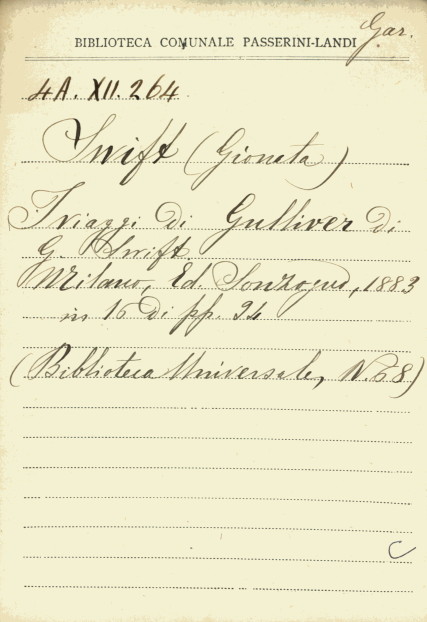 Gar.
BIBLIOTECA COMUNALE PASSERINI-LANDI
4A. XII. 264
Swift (Gionata)
I viaggi di Gulliver di
G. Swift.
Milano, Ed. Sonzogno, 1883
in 16 di pp. 94
(Biblioteca Universale, N. 68)
C